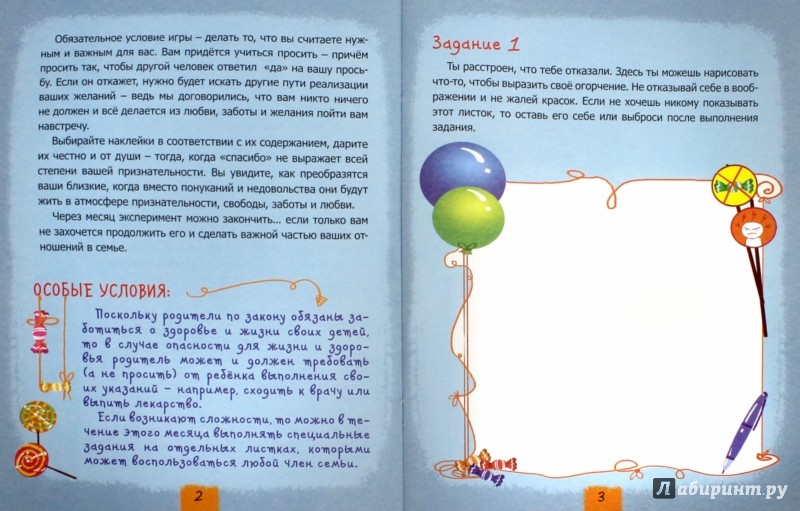 Обязательное условие игры – делать то, что вы считаете нуж-
ным и важным для вас. Вам придётся учиться просить – причём
просить так, чтобы другой человек ответил «да» на вашу прось-
бу. Если он откажет, нужно будет искать другие пути реализации
ваших желаний – ведь мы договорились, что вам никто ничего
не должен и всё делается из любви, заботы и желания пойти вам
навстречу.
Выбирайте наклейки в соответствии с их содержанием, дарите
их честно и от души – тогда, когда «спасибо» не выражает всей
степени вашей признательности. Вы увидите, как преобразятся
ваши близкие, когда вместо понуканий и недовольства они будут
жить в атмосфере признательности, свободы, заботы и любви.
Через месяц эксперимент можно закончить... если только вам
не захочется продолжить его и сделать важной частью ваших от-
ношений в семье.
ОСОБЫЕ УСЛОВИЯ:
Поскольку родители по закону обязаны за-
ботиться о здоровье и жизни своих детей,
то в случае опасности для жизни и здоро-
вья родитель может и должен требовать
(а не просить) от ребёнка выполнения сво-
их указаний – например, сходить к врачу или
выпить лекарство.
Если возникают сложности, то можно в те-
чение этого месяца выполнять специальные
задания на отдельных листках, которыми
может воспользоваться любой член семьи.
2
Задание 1
Ты расстроен, что тебе отказали. Здесь ты можешь нарисовать
что-то, чтобы выразить своё огорчение. Не отказывай себе в вооб-
ражении и не жалей красок. Если не хочешь никому показывать
этот листок, то оставь его себе или выброси после выполнения
задания.
3
Лабиринт.ру